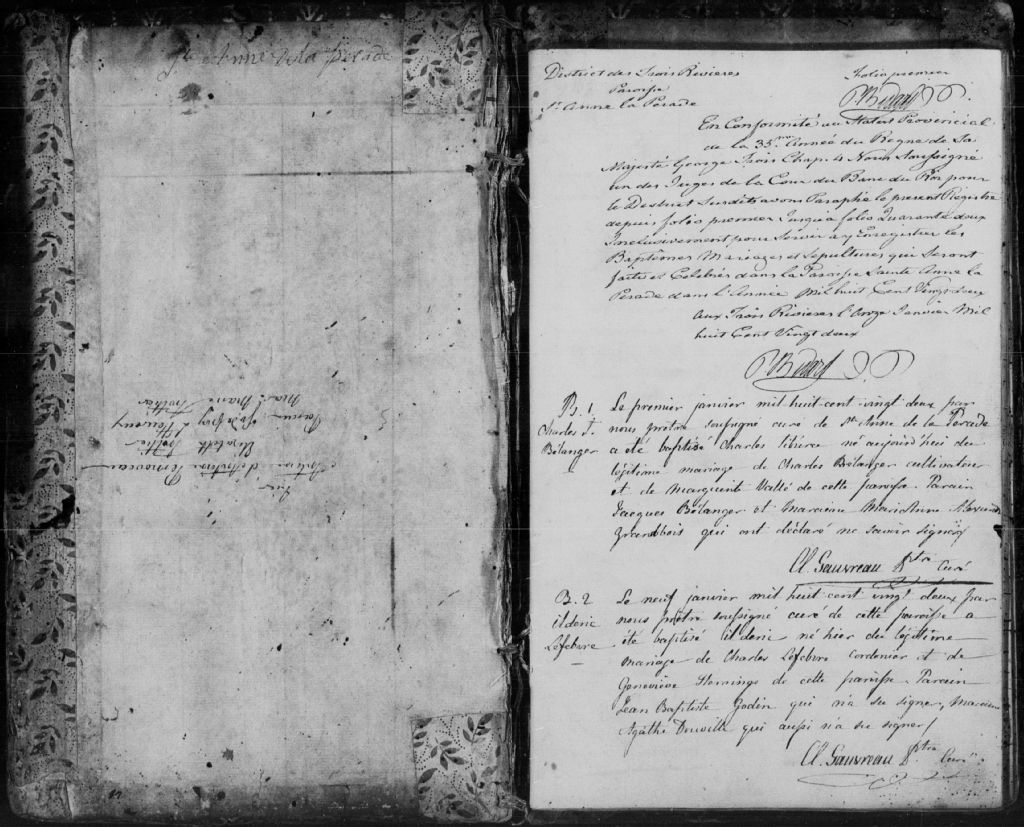 Ste Anne de la Pérade
Marie
Antoine d'Antoine
Elizabeth
Parain
Mar. Marie
District des Trois Rivieres
Paroisse
St. Anne la Perade
Folio premier
P. Bedard
En Conformité au Statut Provincial
de la 35me Année du Regne de Sa
Majesté George Trois Chap. 4 Nous Soussigné
un des Juges de la Cour du Banc du Roi pour
le District Susdit avons Paraphé le present Régistre
depuis folio premier Jusqu'a folio Quarante deux
Inclusivement pour Servir a y Enregistrer les
Baptêmes Mariages et Sepultures qui Seront
faits et Celebrés dans la Paroisse Sainte Anne la
Perade dans l'Année Mil huit Cent Vingt deux
Aux Trois Rivieres l'Onze Janvier Mil
huit Cent Vingt deux
P. Bedard
B. 1.
Charles T.
Bélanger
Le premier janvier mil huit-cent-vingt deux par
nous prêtre soussigné curé de Ste Anne de la Perade
a été baptisé Charles libère né aujourd'hui du
légitime mariage de Charles Bélanger cultivateur
et de Marguerite Vallé de cette paroisse. Parain
Jacques Bélanger et Maraine MarieAnne
Grandbois qui ont déclaré ne savoir signer
Cl. Gauvreau Ptre Curé
B. 2
ilderic
Lefebvre
Le neuf janvier mil huit cent vingt deux par
nous prêtre soussigné curé de cette paroisse a
été baptisé ilderic né hier du légitime
mariage de Charles Lefebvre cordonier et de
Geneviève de cette paroisse. Parain
Jean Baptiste Godin qui n'a su signer, Maraine
Agathe Douville qui aussi n'a su signer
Cl. Gauvreau Ptre Curé